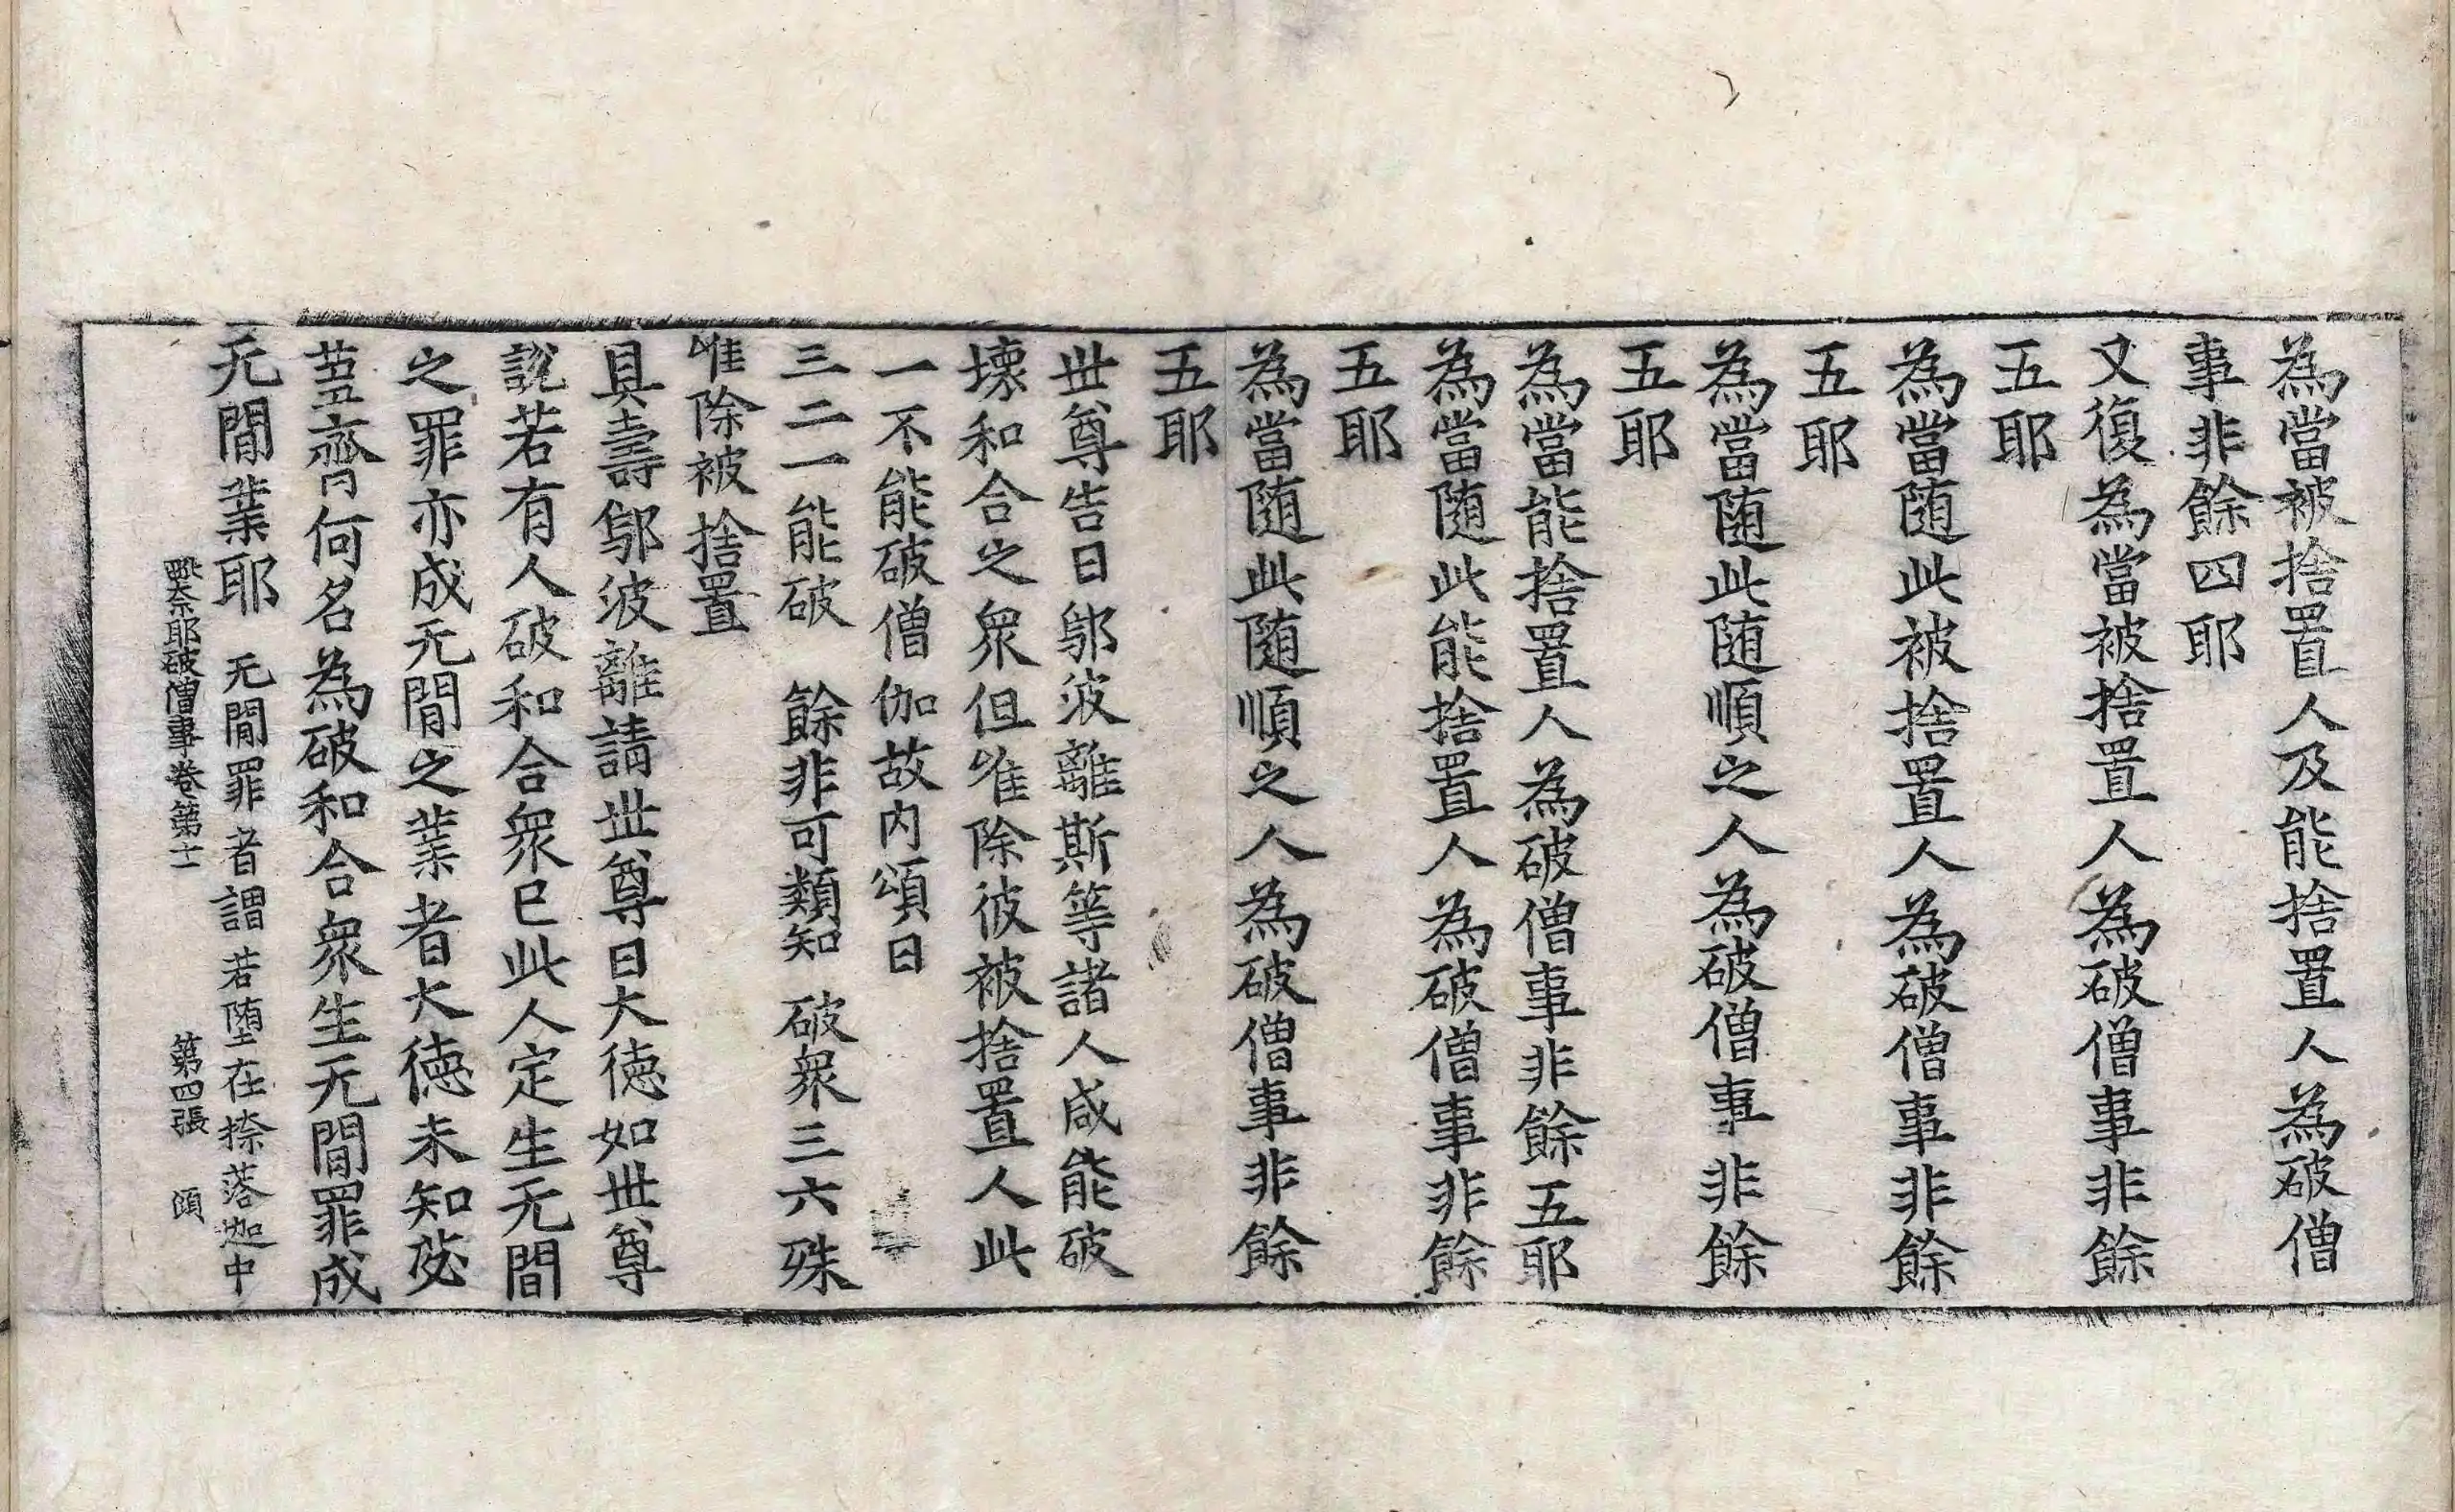 為當被捨置人及能捨置人為破僧
事非餘四耶
又復為當被捨置人為破僧事非餘
五耶
為當随此被捨置人為破僧事非餘
五耶
為當随此随順之人為破僧事非餘
五耶
為當能捨置人為破僧事非餘五耶
為當随此能捨置人為破僧事非餘
五耶
為當随此随順之人為破僧事非餘
五耶
世尊告曰鄔波離斯等諸人咸能破
壊和合之衆但唯除彼被捨置人此
一不能破僧伽故内頌曰
三二一能破　餘非可類知　破衆三六殊
唯除被捨置
具壽鄔波離請世尊曰大徳如世尊
說若有人破和合衆巳此人定生无間
之罪亦成无間之業者大徳未知苾
蒭齊何名為破和合衆生无間罪成
无間業耶　无間罪者謂若堕在捺落迦中
毗奈耶破僧事卷第十一　第四張　頤